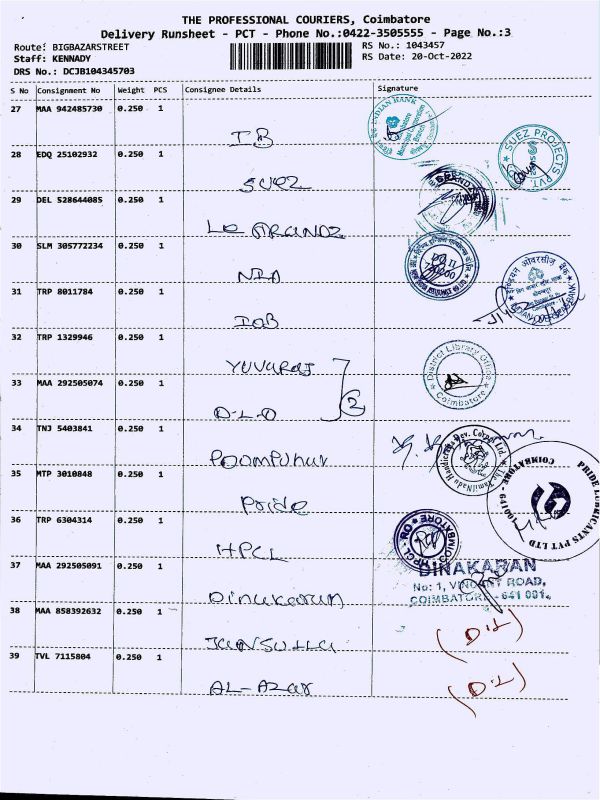 THE PROFESSIONAL COURIERS, Coimbatore
Delivery Runsheet - PCT - Phone No.:0422-3505555 - Page No.:3
Route: BIGBAZARSTREET RS No.: 1043457
Staff: KENNADY RS Date: 20-Oct-2022
DRS No.: DCJB104345703
S No Consignment No Weight PCS Consignee Details Signature
27 MAA 942485730 0.250 1
IB
INDIAN BANK
28 EDQ 25102932 0.250 1
SUEZ
SUEZ PROJECTS PVT.
29 DEL 528644085 0.250 1
Le GRANDE
30 SLM 305772234 0.250 1
NIA
31 TRP 8011784 0.250 1
IOB
इण्डियन ओवरसीज़ बैंक
32 TRP 1329946 0.250 1
YUVARAJ
33 MAA 292505074 0.250 1
D-L-O
2
District Library Office
Coimbatore
34 TNJ 5403841 0.250 1
POOMPUHAR
35 MTP 3010848 0.250 1
Pride
PRIDE LUBRICANTS PVT LTD
COIMBATORE
36 TRP 6304314 0.250 1
HPCL
HPCL - RO COIMBATORE
37 MAA 292505091 0.250 1
Dinakaran
DINAKARAN
No: 1, VINCENT ROAD,
COIMBATORE - 641 001.
38 MAA 858392632 0.250 1
(D.L)
39 TVL 7115804 0.250 1
AL-AZAR
(D.L)